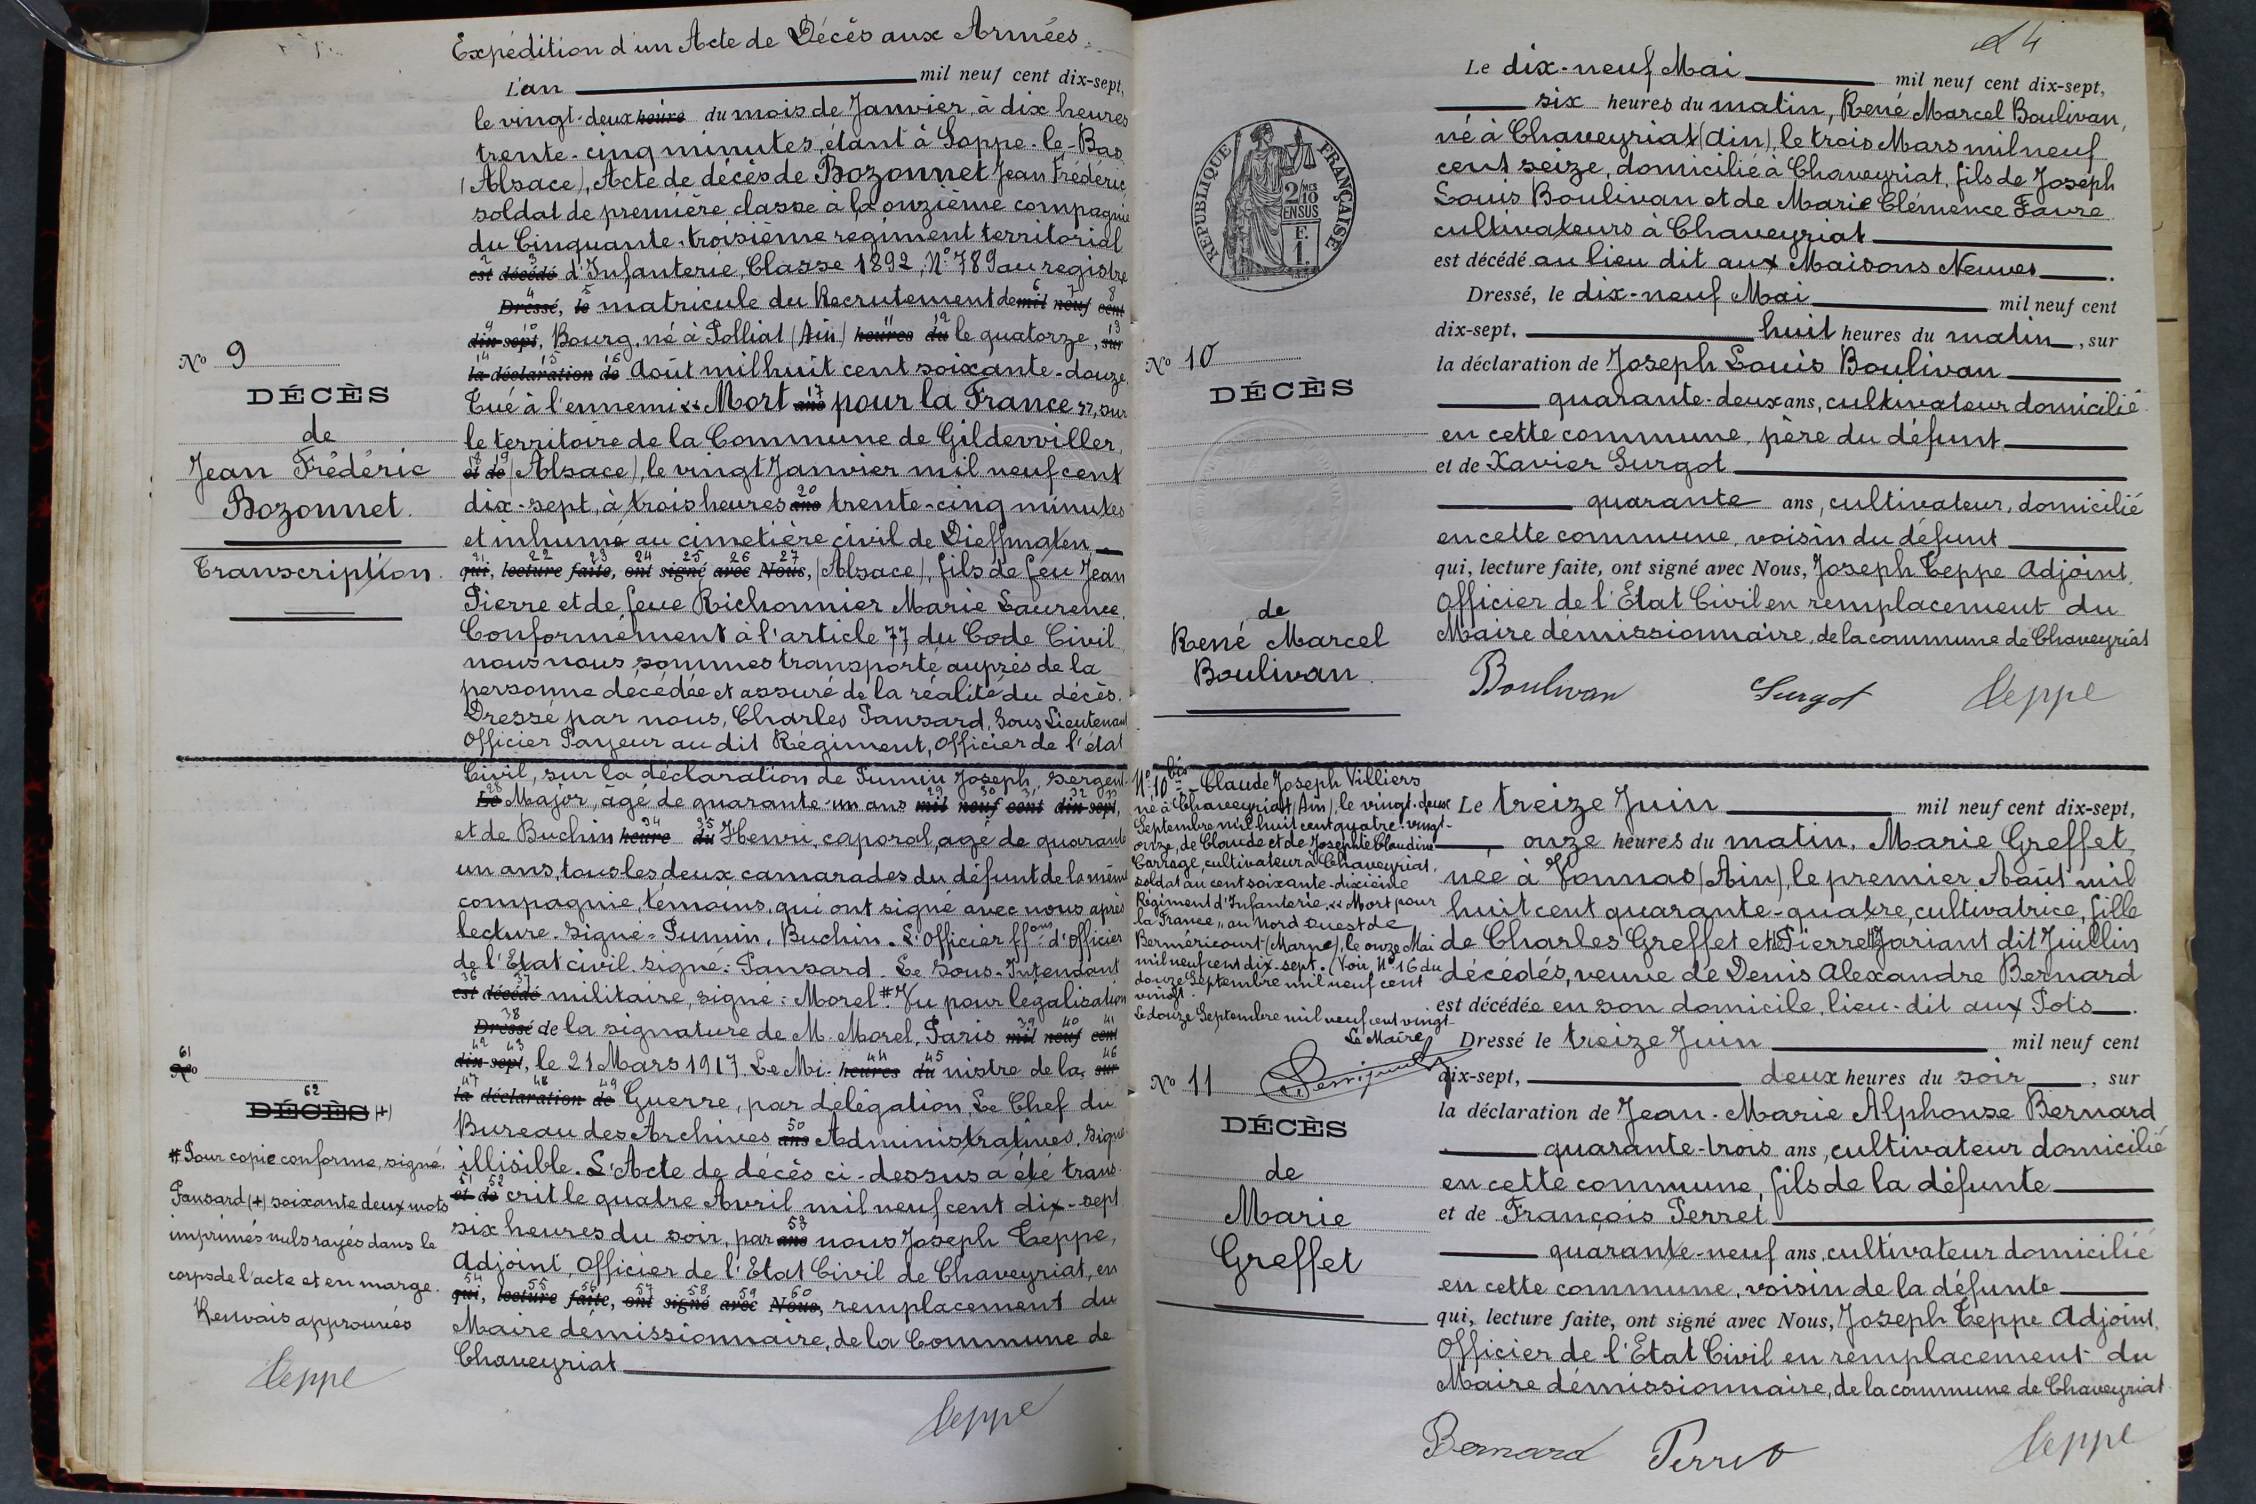 Expédition d'un Acte de Décès aux Armées.
L'an mil neuf cent dix-sept,
le vingt-deux heure du mois de Janvier, à dix heures
trente-cinq minutes, étant à Soppe-le-Bas
(Alsace), Acte de décès de Bozonnet Jean Frédéric
soldat de première classe à la onzième compagnie
du Cinquante-troisième régiment territorial
2 3
est décédé d'Infanterie, Classe 1892, No 789 au registre
4 5 6 7 8
Dressé, le matricule du Recrutement de mil neuf cent
9 10 11 12 13
dix-sept, Bourg, né à Polliat (Ain) heures du le quatorze, sur
14 15 16
la déclaration de Août mil huit cent soixante-douze
17
Tué à l'ennemi « Mort ans pour la France », sur
le territoire de la Commune de Gilderviller,
18 19
et de (Alsace), le vingt Janvier mil neuf cent
20
dix-sept, à trois heures ans trente-cinq minutes
et inhumé au cimetière civil de Dieffmaten
21 22 23 24 25 26 27
qui, lecture faite, ont signé avec Nous, (Alsace), fils de feu Jean
Pierre et de feue Richonnier Marie Laurence.
Conformément à l'article 77 du Code Civil
nous nous sommes transporté auprès de la
personne décédée et assuré de la réalité du décès.
Dressé par nous, Charles Pansard, Sous Lieutenant
Officier Payeur au dit Régiment, Officier de l'état
No 9
DÉCÈS
de
Jean Frédéric
Bozonnet.
Transcription.
Civil, sur la déclaration de Pumin Joseph, Sergent-
28 29 30 31 32 33
Le Major, âgé de quarante-un ans mil neuf cent dix-sept,
34 35
et de Buchin heure du Henri, caporal, âgé de quarante
un ans, tous les deux camarades du défunt de la même
compagnie, témoins, qui ont signé avec nous après
lecture. Signé = Pumin, Buchin. L'Officier ffons d'Officier
de l'Etat civil signé = Pansard. Le Sous-Intendant
36 37
est décédé militaire, signé : Morel # Vu pour légalisation
38 39 40 41
Dressé de la signature de M. Morel, Paris mil neuf cent
42 43 44 45 46
dix-sept, le 21 Mars 1917. Le Mi- heures du nistre de la, sur
47 48 49
la déclaration de Guerre, par délégation, Le Chef du
50
Bureau des Archives ans Administratives, Signé
illisible. L'Acte de décès ci-dessus a été trans-
51 52
et de crit le quatre Avril mil neuf cent dix-sept
53
six heures du soir, par ans nous Joseph Teppe,
Adjoint, Officier de l'Etat Civil de Chaveyriat, en
54 55 56 57 58 59 60
qui, lecture faite, ont signé avec Nous, remplacement du
Maire démissionnaire, de la Commune de
Chaveyriat
Teppe
61
No
62
DÉCÈS (+)
# Pour copie conforme, signé.
Pansard (+) soixante deux mots
imprimés nuls rayés dans le
corps de l'acte et en marge.
Renvois approuvés
Teppe
14
Le dix-neuf Mai mil neuf cent dix-sept,
six heures du matin, René Marcel Boulivan,
né à Chaveyriat (Ain), le trois Mars mil neuf
cent seize, domicilié à Chaveyriat, fils de Joseph
Louis Boulivan et de Marie Clémence Favre
cultivateurs à Chaveyriat
est décédé au lieu dit aux Maisons Neuves.
Dressé, le dix-neuf Mai mil neuf cent
dix-sept, huit heures du matin, sur
la déclaration de Joseph Louis Boulivan
quarante-deux ans, cultivateur domicilié
en cette commune, père du défunt
et de Xavier Surgot
quarante ans, cultivateur, domicilié
en cette commune, voisin du défunt
qui, lecture faite, ont signé avec Nous, Joseph Teppe Adjoint,
Officier de l'Etat Civil en remplacement du
Maire démissionnaire, de la commune de Chaveyriat
Boulivan Surgot Teppe
RÉPUBLIQUE FRANÇAISE
2/10MES
EN SUS
F.
1.
No 10
DÉCÈS
de
René Marcel
Boulivan.
No 10 bis - Claude Joseph Villiers
né à Chaveyriat (Ain), le vingt-deux
Septembre mil huit cent quatre-vingt-
onze, de Claude et de Josephte Claudine
Carrage, cultivateur à Chaveyriat,
soldat au cent soixante-dixième
Régiment d'Infanterie « Mort pour
la France » au Nord Ouest de
Berméricourt (Marne), le onze Mai
mil neuf cent dix-sept. (Voir No 16 du
douze Septembre mil neuf cent
vingt.
Le douze Septembre mil neuf cent vingt-
Le Maire,
No 11
DÉCÈS
de
Marie
Greffet
Le treize Juin mil neuf cent dix-sept,
onze heures du matin, Marie Greffet,
née à Vonnas (Ain), le premier Août mil
huit cent quarante-quatre, cultivatrice, fille
de Charles Greffet et Pierrette Jariant dit Juillin
décédés, veuve de Denis Alexandre Bernard
est décédée en son domicile lieu-dit aux Pots.
Dressé le treize Juin mil neuf cent
dix-sept, deux heures du soir, sur
la déclaration de Jean-Marie Alphonse Bernard
quarante-trois ans, cultivateur domicilié
en cette commune, fils de la défunte
et de François Perret
quarante-neuf ans, cultivateur domicilié
en cette commune, voisin de la défunte
qui, lecture faite, ont signé avec Nous, Joseph Teppe Adjoint,
Officier de l'Etat Civil en remplacement du
Maire démissionnaire, de la commune de Chaveyriat
Bernard Perret Teppe